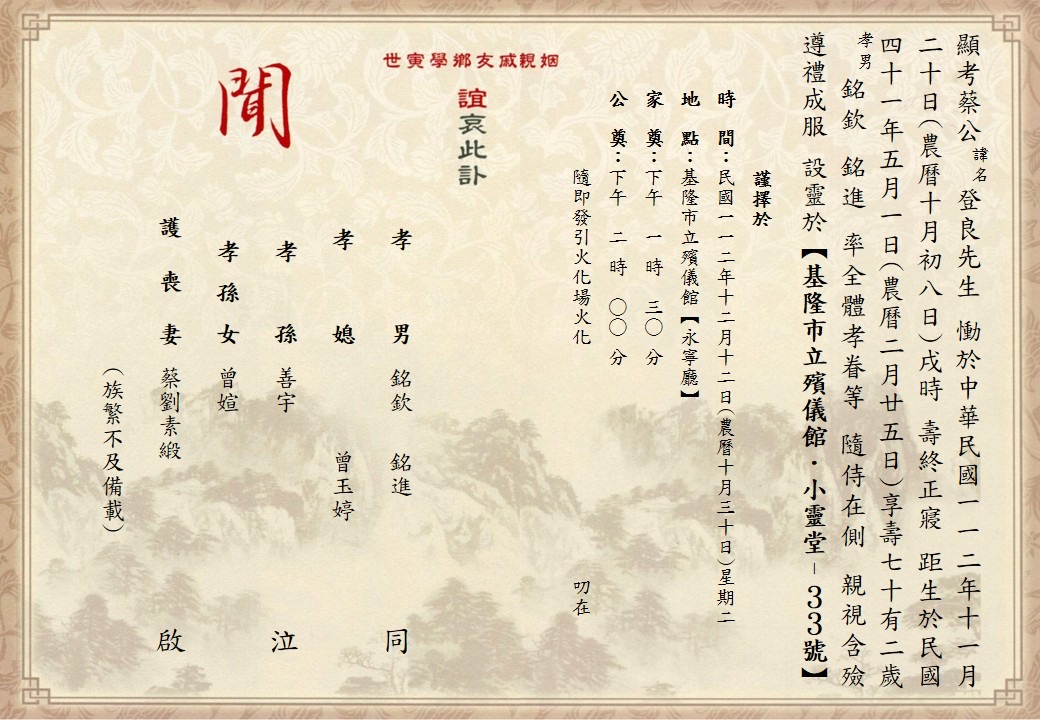 顯考蔡公諱名登良先生 慟於中華民國一一二年十一月
二十日(農曆十月初八日)戌時 壽終正寢 距生於民國
四十一年五月一日(農曆二月廿五日)享壽七十有二歲
孝男 銘欽 銘進 率全體孝眷等 隨侍在側 親視含殮
遵禮成服 設靈於【基隆市立殯儀館．小靈堂－33號】
謹擇於
時間：民國一一二年十二月十二日(農曆十月三十日)星期二
地點：基隆市立殯儀館【永寧廳】
家奠：下午 一時 三〇分
公奠：下午 二時 〇〇分
隨即發引火化場火化 叨在
姻親戚友鄉學寅世
誼哀此訃
聞
孝男 銘欽 銘進
孝媳 曾玉婷
孝孫 善宇
孝孫女 曾媗
護喪妻 蔡劉素緞
(族繁不及備載)
同泣啟